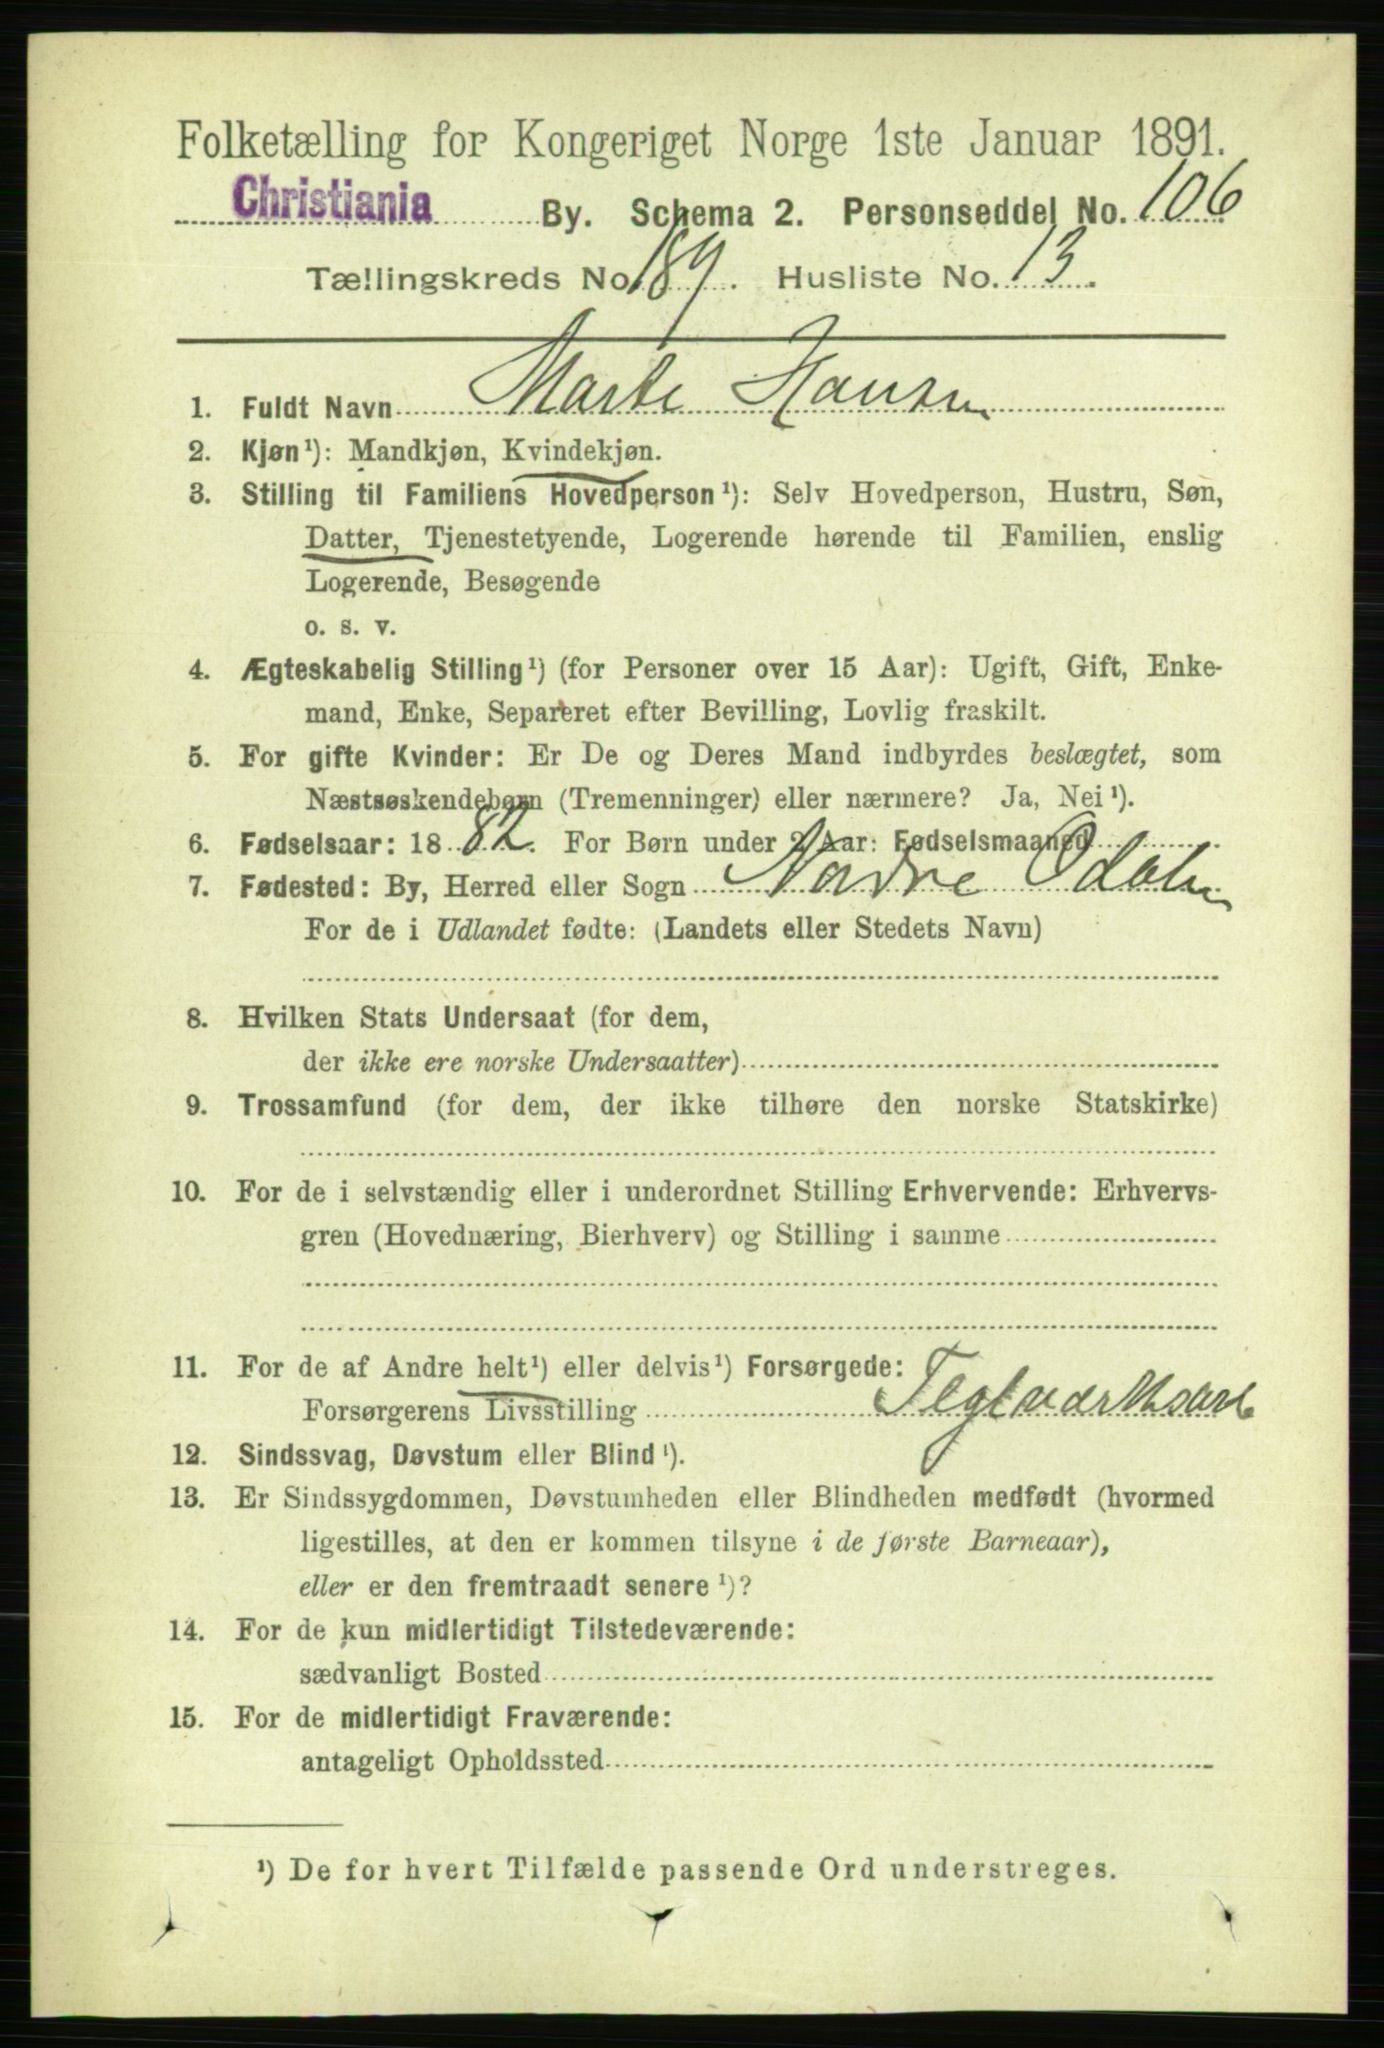 Folketælling for Kongeriget Norge 1ste Januar 1891.
Christiania By. Schema 2. Personseddel No. 106
Tællingskreds No. 189. Husliste No. 13.
1. Fuldt Navn Marte Hansen
2. Kjøn¹): Mandkjøn, Kvindekjøn.
3. Stilling til Familiens Hovedperson¹): Selv Hovedperson, Hustru, Søn,
Datter, Tjenestetyende, Logerende hørende til Familien, enslig
Logerende, Besøgende
o. s. v.
4. Ægteskabelig Stilling¹) (for Personer over 15 Aar): Ugift, Gift, Enke-
mand, Enke, Separeret efter Bevilling, Lovlig fraskilt.
5. For gifte Kvinder: Er De og Deres Mand indbyrdes beslægtet, som
Næstsøskendebørn (Tremenninger) eller nærmere? Ja, Nei¹).
6. Fødselsaar: 1882. For Børn under 2 Aar: Fødselsmaaned
7. Fødested: By, Herred eller Sogn Nordre Odalen
For de i Udlandet fødte: (Landets eller Stedets Navn)
8. Hvilken Stats Undersaat (for dem,
der ikke ere norske Undersaatter)
9. Trossamfund (for dem, der ikke tilhøre den norske Statskirke)
10. For de i selvstændig eller i underordnet Stilling Erhvervende: Erhvervs-
gren (Hovednæring, Bierhverv) og Stilling i samme
11. For de af Andre helt¹) eller delvis¹) Forsørgede:
Forsørgerens Livsstilling Teglværksarb
12. Sindssvag, Døvstum eller Blind¹).
13. Er Sindssygdommen, Døvstumheden eller Blindheden medfødt (hvormed
ligestilles, at den er kommen tilsyne i de første Barneaar),
eller er den fremtraadt senere¹)?
14. For de kun midlertidigt Tilstedeværende:
sædvanligt Bosted
15. For de midlertidigt Fraværende:
antageligt Opholdssted
¹) De for hvert Tilfælde passende Ord understreges.